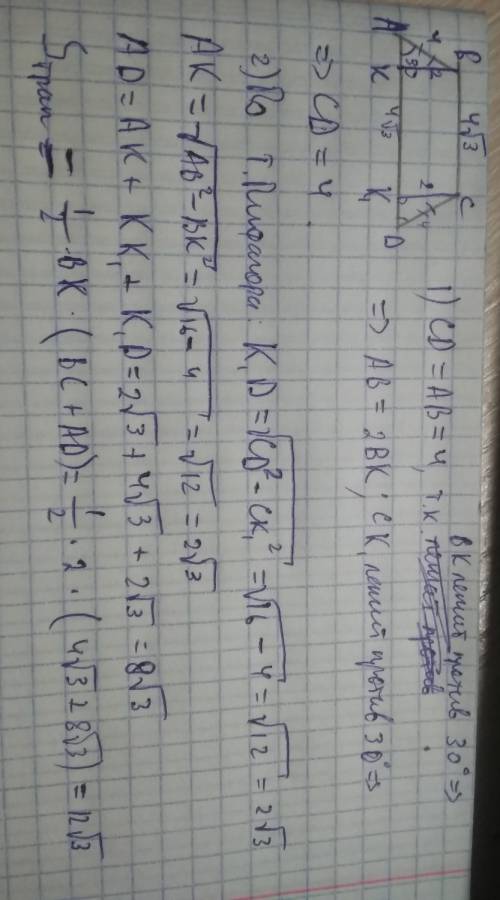 B 4√3 C
4 2 2 4
A 30° K 4√3 K₁ D
ВК лежит против 30° =>
1) CD = AB = 4, т.к. лежит против
=> AB = 2BK; CK₁ лежит против 30° =>
=> CD = 4
2) По т. Пифагора: K₁D = √CD² - CK₁² = √16 - 4 = √12 = 2√3
AK = √AB² - BK² = √16 - 4 = √12 = 2√3
AD = AK + KK₁ + K₁D = 2√3 + 4√3 + 2√3 = 8√3
Sтрап = 1/2 · BK · (BC + AD) = 1/2 · 2 · (4√3 + 8√3) = 12√3